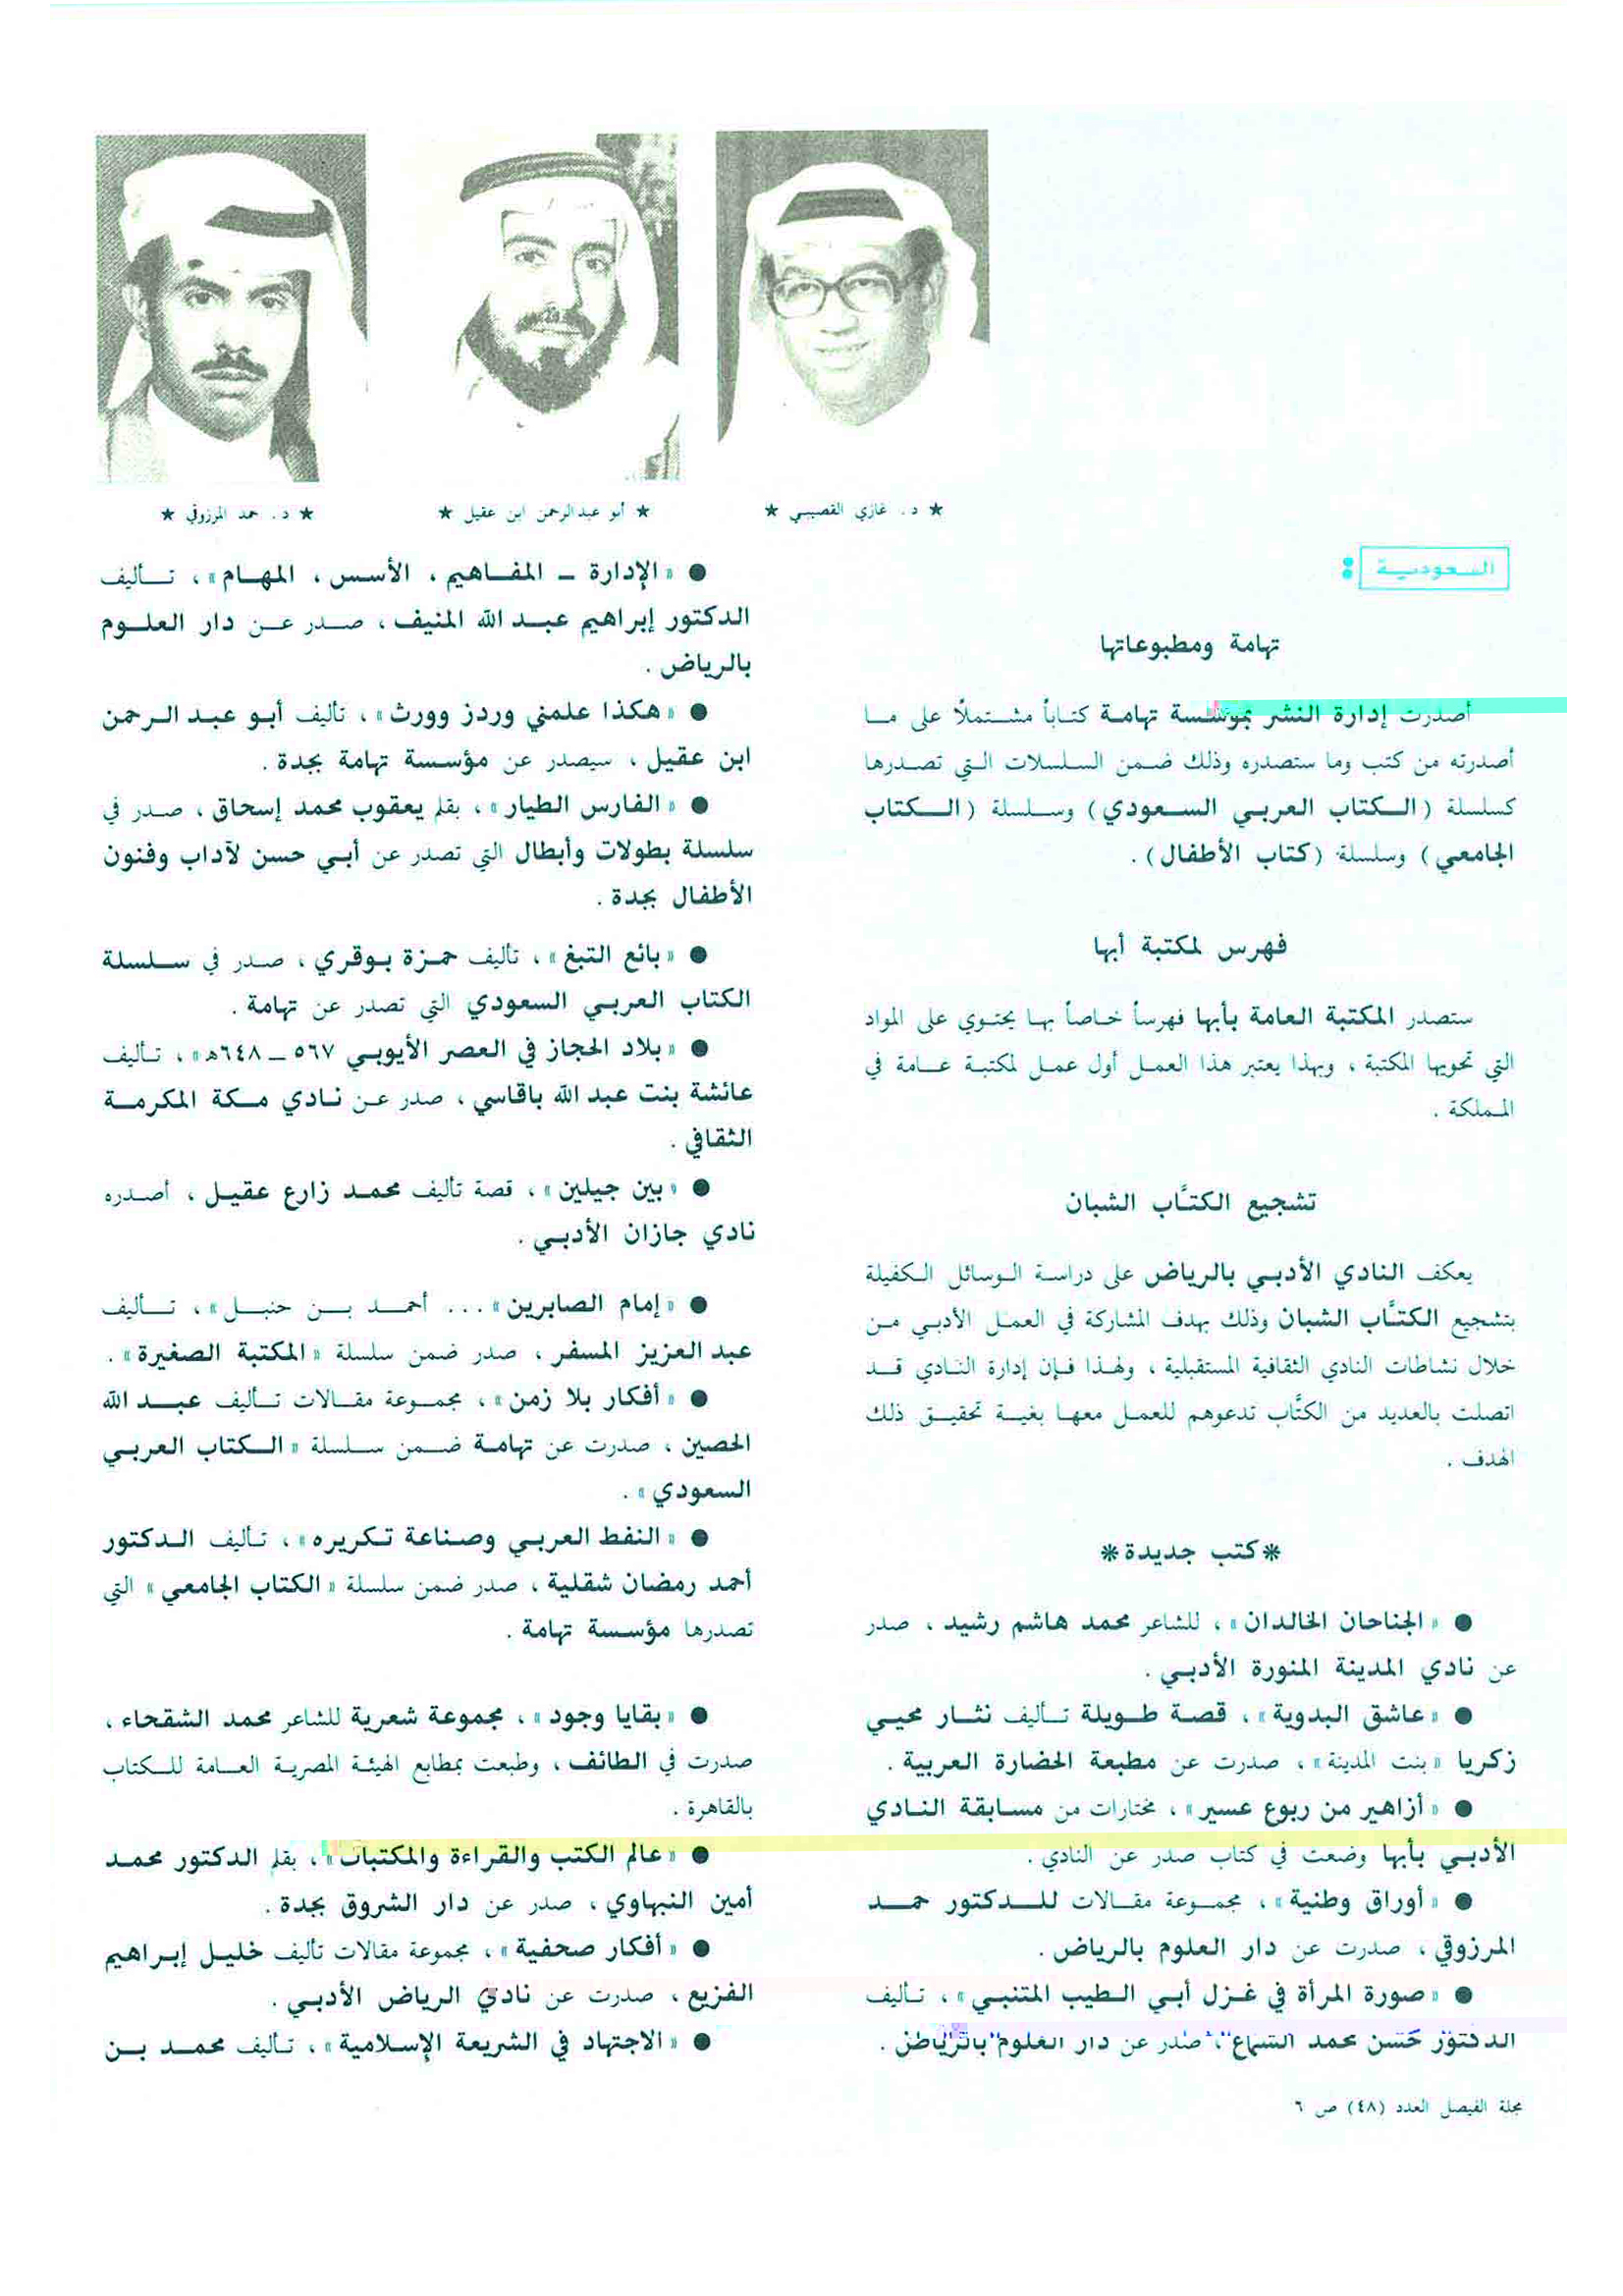 ★ د. غازي القصيبي ★
★ أبو عبدالرحمن ابن عقيل ★
★ د. حمد المرزوقي ★
السعودية :
تهامة ومطبوعاتها
أصدرت إدارة النشر بمؤسسة تهامة كتاباً مشتملاً على ما
أصدرته من كتب وما ستصدره وذلك ضمن السلسلات التي تصدرها
كسلسلة (الكتاب العربي السعودي) وسلسلة (الكتاب
الجامعي) وسلسلة (كتاب الأطفال).
فهرس لمكتبة أبها
ستصدر المكتبة العامة بأبها فهرساً خاصاً بها يحتوي على المواد
التي تحويها المكتبة ، وبهذا يعتبر هذا العمل أول عمل لمكتبة عامة في
المملكة .
تشجيع الكتَّاب الشبان
يعكف النادي الأدبي بالرياض على دراسة الوسائل الكفيلة
بتشجيع الكتَّاب الشبان وذلك بهدف المشاركة في العمل الأدبي من
خلال نشاطات النادي الثقافية المستقبلية ، ولهذا فإن إدارة النادي قد
اتصلت بالعديد من الكتَّاب تدعوهم للعمل معها بغية تحقيق ذلك
الهدف .
*كتب جديدة*
● «الجناحان الخالدان» ، للشاعر محمد هاشم رشيد ، صدر
عن نادي المدينة المنورة الأدبي .
● «عاشق البدوية» ، قصة طويلة تأليف نثار محيي
زكريا «بنت المدينة» ، صدرت عن مطبعة الحضارة العربية .
● «أزاهير من ربوع عسير» ، مختارات من مسابقة النادي
الأدبي بأبها وضعت في كتاب صدر عن النادي .
● «أوراق وطنية» ، مجموعة مقالات للدكتور حمد
المرزوقي ، صدرت عن دار العلوم بالرياض .
● «صورة المرأة في غزل أبي الطيب المتنبي» ، تأليف
الدكتور حسن محمد الشماع ، صدر عن دار العلوم بالرياض .
● «الإدارة ـ المفاهيم ، الأسس ، المهام» ، تأليف
الدكتور إبراهيم عبد الله المنيف ، صدر عن دار العلوم
بالرياض .
● «هكذا علمني وردز وورث» ، تأليف أبو عبد الرحمن
ابن عقيل ، سيصدر عن مؤسسة تهامة بجدة .
● «الفارس الطيار» ، بقلم يعقوب محمد إسحاق ، صدر في
سلسلة بطولات وأبطال التي تصدر عن أبي حسن لآداب وفنون
الأطفال بجدة .
● «بائع التبغ» ، تأليف حمزة بوقري ، صدر في سلسلة
الكتاب العربي السعودي التي تصدر عن تهامة .
● «بلاد الحجاز في العصر الأيوبي ٥٦٧ ـ ٦٤٨هـ» ، تأليف
عائشة بنت عبد الله باقاسي ، صدر عن نادي مكة المكرمة
الثقافي .
● «بين جيلين» ، قصة تأليف محمد زارع عقيل ، أصدره
نادي جازان الأدبي .
● «إمام الصابرين» ... أحمد بن حنبل» ، تأليف
عبد العزيز المسفر ، صدر ضمن سلسلة «المكتبة الصغيرة» .
● «أفكار بلا زمن» ، مجموعة مقالات تأليف عبد الله
الحصين ، صدرت عن تهامة ضمن سلسلة «الكتاب العربي
السعودي» .
● «النفط العربي وصناعة تكريره» ، تأليف الدكتور
أحمد رمضان شقلية ، صدر ضمن سلسلة «الكتاب الجامعي» التي
تصدرها مؤسسة تهامة .
● «بقايا وجود» ، مجموعة شعرية للشاعر محمد الشقحاء ،
صدرت في الطائف ، وطبعت بمطابع الهيئة المصرية العامة للكتاب
بالقاهرة .
● «عالم الكتب والقراءة والمكتبات» ، بقلم الدكتور محمد
أمين النبهاوي ، صدر عن دار الشروق بجدة .
● «أفكار صحفية» ، مجموعة مقالات تأليف خليل إبراهيم
الفزيع ، صدرت عن نادي الرياض الأدبي .
● «الاجتهاد في الشريعة الإسلامية» ، تأليف محمد بن
مجلة الفيصل العدد (٤٨) ص ٦